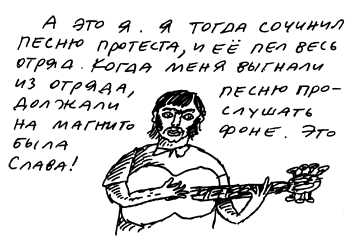 А это я. Я тогда сочинил
песню протеста, и её пел весь
отряд. Когда меня выгнали
из отряда, песню про-
должали слушать
на магнито фоне. Это
была
слава!